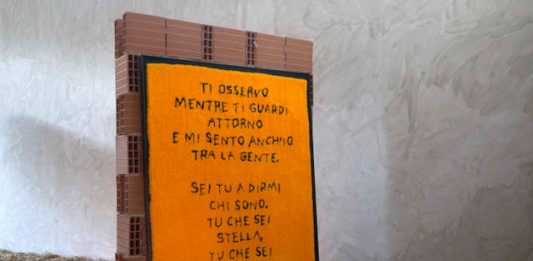 TI OSSERVO
MENTRE TI GUARDI
ATTORNO
E MI SENTO ANCH'IO
TRA LA GENTE.
SEI TU A DIRMI
CHI SONO.
TU CHE SEI
STELLA,
TU CHE SEI